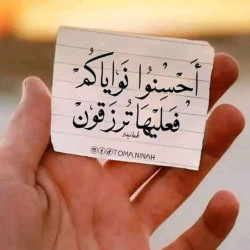 أَحْسِنُوا نَوَايَاكُمْ
فَعَلَيْهَا تُرزَقُونْ
TOMA.NINAH